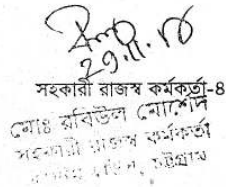 29.11.18
সহকারী রাজস্ব কর্মকর্তা-৪
মোঃ রবিউল মোর্শেদ
সহকারী রাজস্ব কর্মকর্তা
চট্টগ্রাম